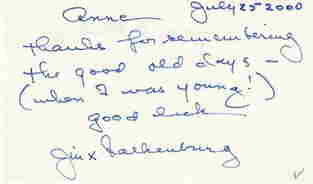 Anne July 25 2000
thanks for remembering
the good old days –
(when I was young!)
good luck
Jinx Falkenburg